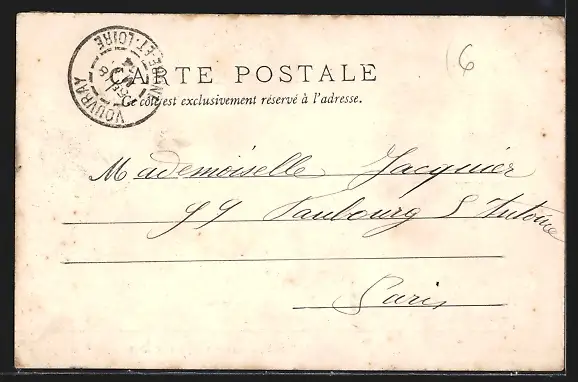 VOUVRAY
INDRE-ET-LOIRE
16
CARTE POSTALE
Ce côté est exclusivement réservé à l'adresse.
Mademoiselle Jacquier
99 Faubourg St Antoine
Paris